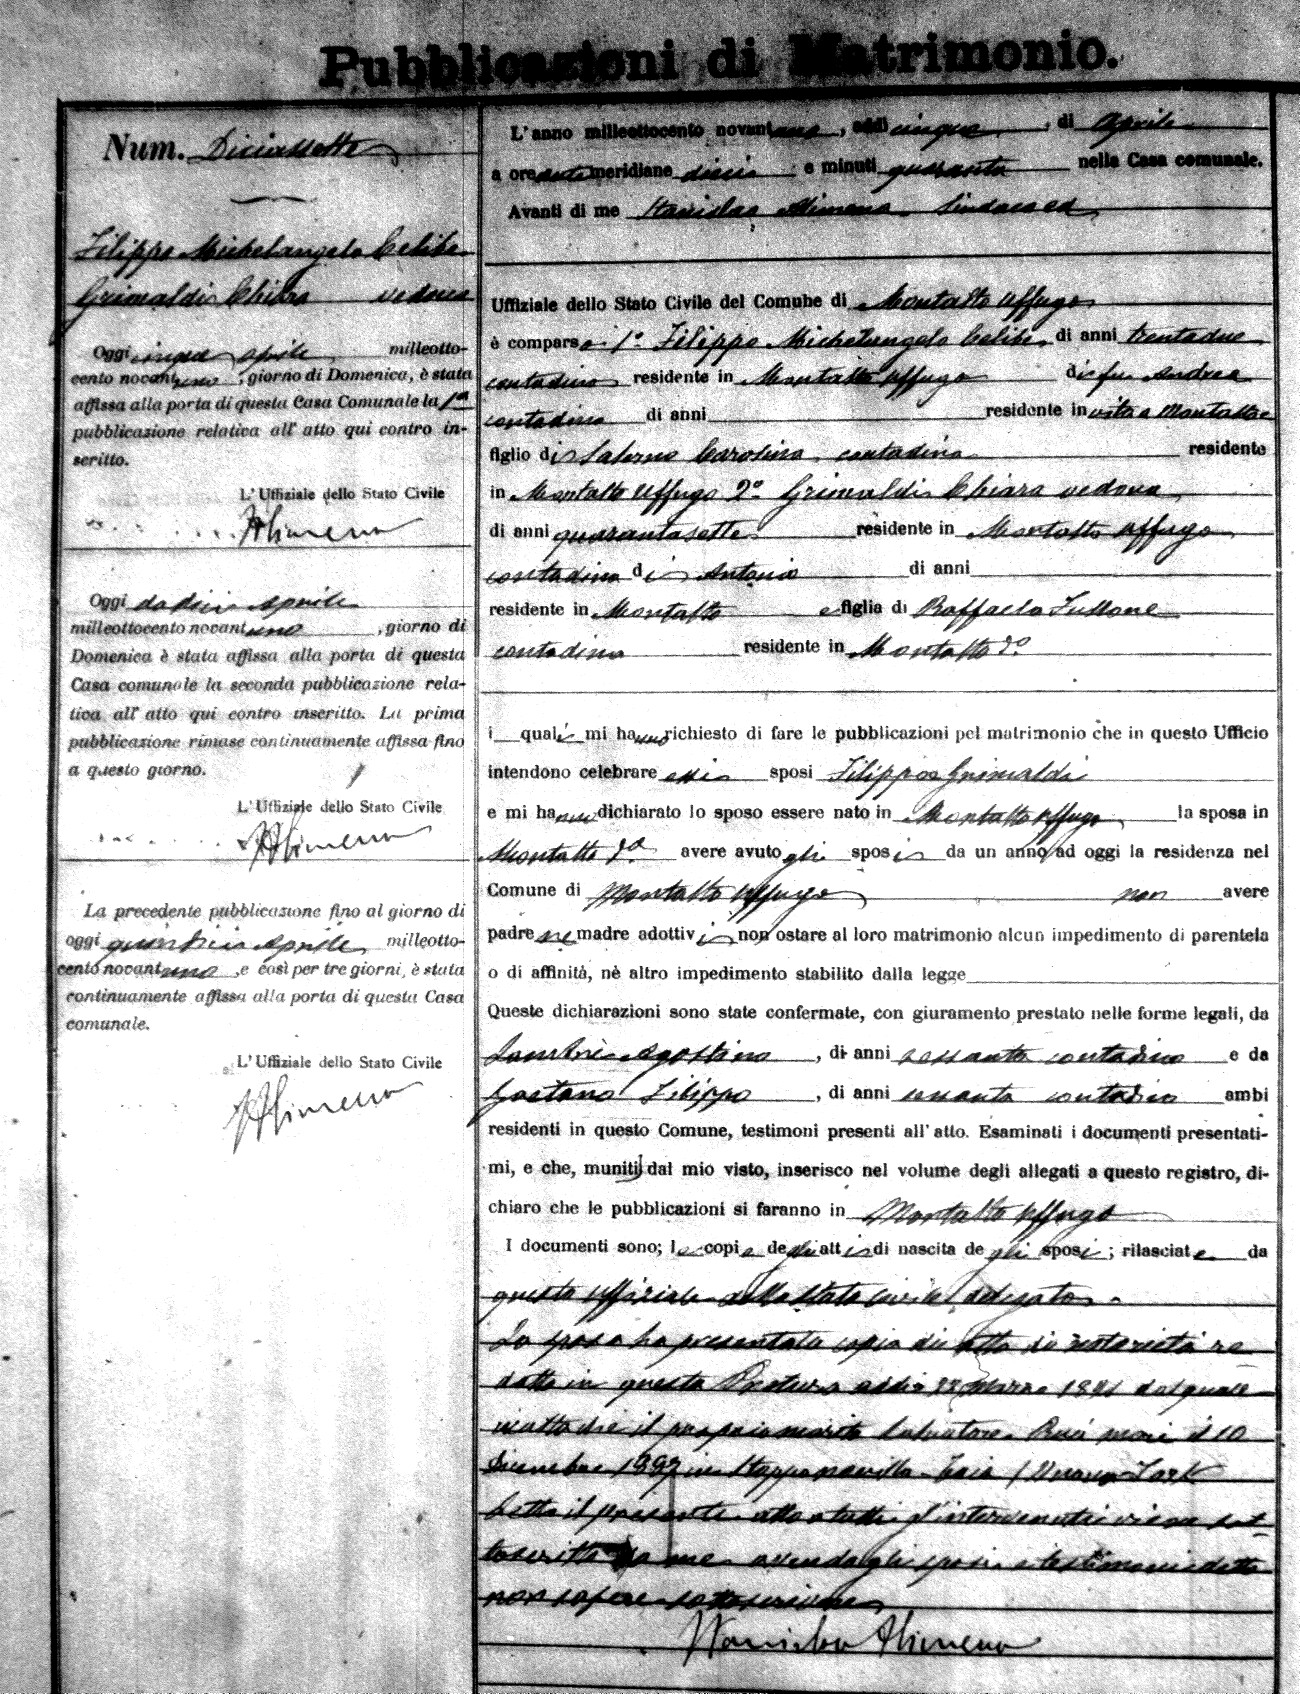 Pubblicazioni di Matrimonio.
Num. Diciassette
Filippo Michelangelo celibe
Grimaldi Chiara vedova
Oggi cinque aprile milleotto-
cento novantuno, giorno di Domenica, è stata
affissa alla porta di questa Casa Comunale la 1a
pubblicazione relativa all' atto qui contro in-
scritto.
L' Uffiziale dello Stato Civile
Alimena
Oggi dodici Aprile
milleottocento novantuno, giorno di
Domenica è stata affissa alla porta di questa
Casa comunale la seconda pubblicazione rela-
tiva all' atto qui contro inscritto. La prima
pubblicazione rimase continuamente affissa fino
a questo giorno.
L' Uffiziale dello Stato Civile
Alimena
La precedente pubblicazione fino al giorno di
oggi quindici Aprile milleotto-
cento novantuno, e così per tre giorni, è stata
continuamente affissa alla porta di questa Casa
comunale.
L' Uffiziale dello Stato Civile
Alimena
L' anno milleottocento novantuno, addì cinque di Aprile
a ore antimeridiane dieci e minuti quaranta nella Casa comunale.
Avanti di me Stanislao Alimena Sindaco ed
Uffiziale dello Stato Civile del Comune di Montalto Uffugo
è comparso 1° Filippo Michelangelo celibe di anni trentadue
contadino residente in Montalto Uffugo di fu Andrea
contadino di anni residente in vita a Montalto e
figlio di Salerno Carolina contadina residente
in Montalto Uffugo 2° Grimaldi Chiara vedova
di anni quarantasette residente in Montalto Uffugo
contadina di Antonio di anni
residente in Montalto e figlia di Raffaela Fullone
contadina residente in Montalto
i quali mi hanno richiesto di fare le pubblicazioni pel matrimonio che in questo Ufficio
intendono celebrare essi sposi Filippo e Grimaldi
e mi hanno dichiarato lo sposo essere nato in Montalto Uffugo la sposa in
Montalto avere avuto gli sposi da un anno ad oggi la residenza nel
Comune di Montalto Uffugo non avere
padre nè madre adottivi non ostare al loro matrimonio alcun impedimento di parentela
o di affinità, nè altro impedimento stabilito dalla legge
Queste dichiarazioni sono state confermate, con giuramento prestato nelle forme legali, da
Agostino, di anni sessanta contadino e da
Gaetano Filippo, di anni sessanta contadino ambi
residenti in questo Comune, testimoni presenti all' atto. Esaminati i documenti presentati-
mi, e che, muniti dal mio visto, inserisco nel volume degli allegati a questo registro, di-
chiaro che le pubblicazioni si faranno in Montalto Uffugo
I documenti sono; le copie degli atti di nascita degli sposi; rilasciate da
questo uffiziale dello stato civile delegato.
La sposa ha presentata copia di atto di notorietà re-
datta in questa Pretura addì Marzo 1891 dal quale
risulta che il proprio marito Salvatore morì il 10
Dicembre in York
Letto il presente atto a tutti gl'intervenuti viene sot-
toscritto da me avendo gli sposi e testimoni detto
non sapere sottoscrivere
Stanislao Alimena